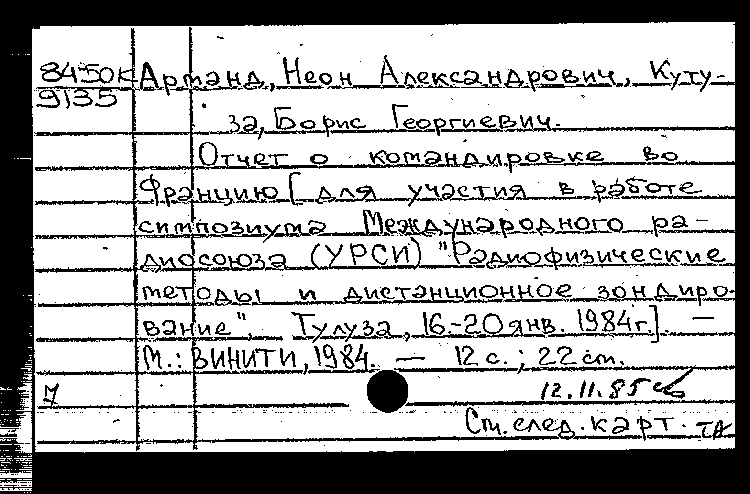 8450к Арманд, Неон Александрович, Куту-
9135
за, Борис Георгиевич.
Отчет о командировке во
Францию [для участия в работе
симпозиума Международного ра-
диосоюза (УРСИ) "Радиофизические
методы и дистанционное зондиро-
вание". Тулуза, 16-20 янв. 1984г.]. —
М.: ВИНИТИ, 1984. — 12 с.; 22 см.
12.11.85
См. след. карт.